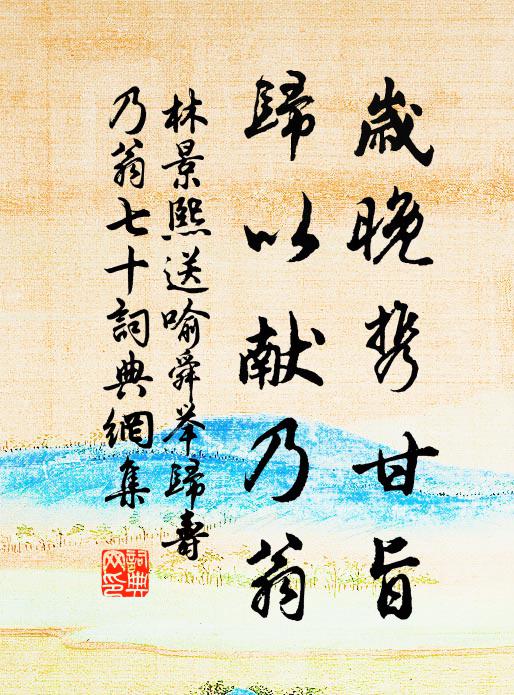 歲晚携甘旨
歸以献乃翁
林景熙送喻舜举歸壽
乃翁七十詞典網集
詞典
网印